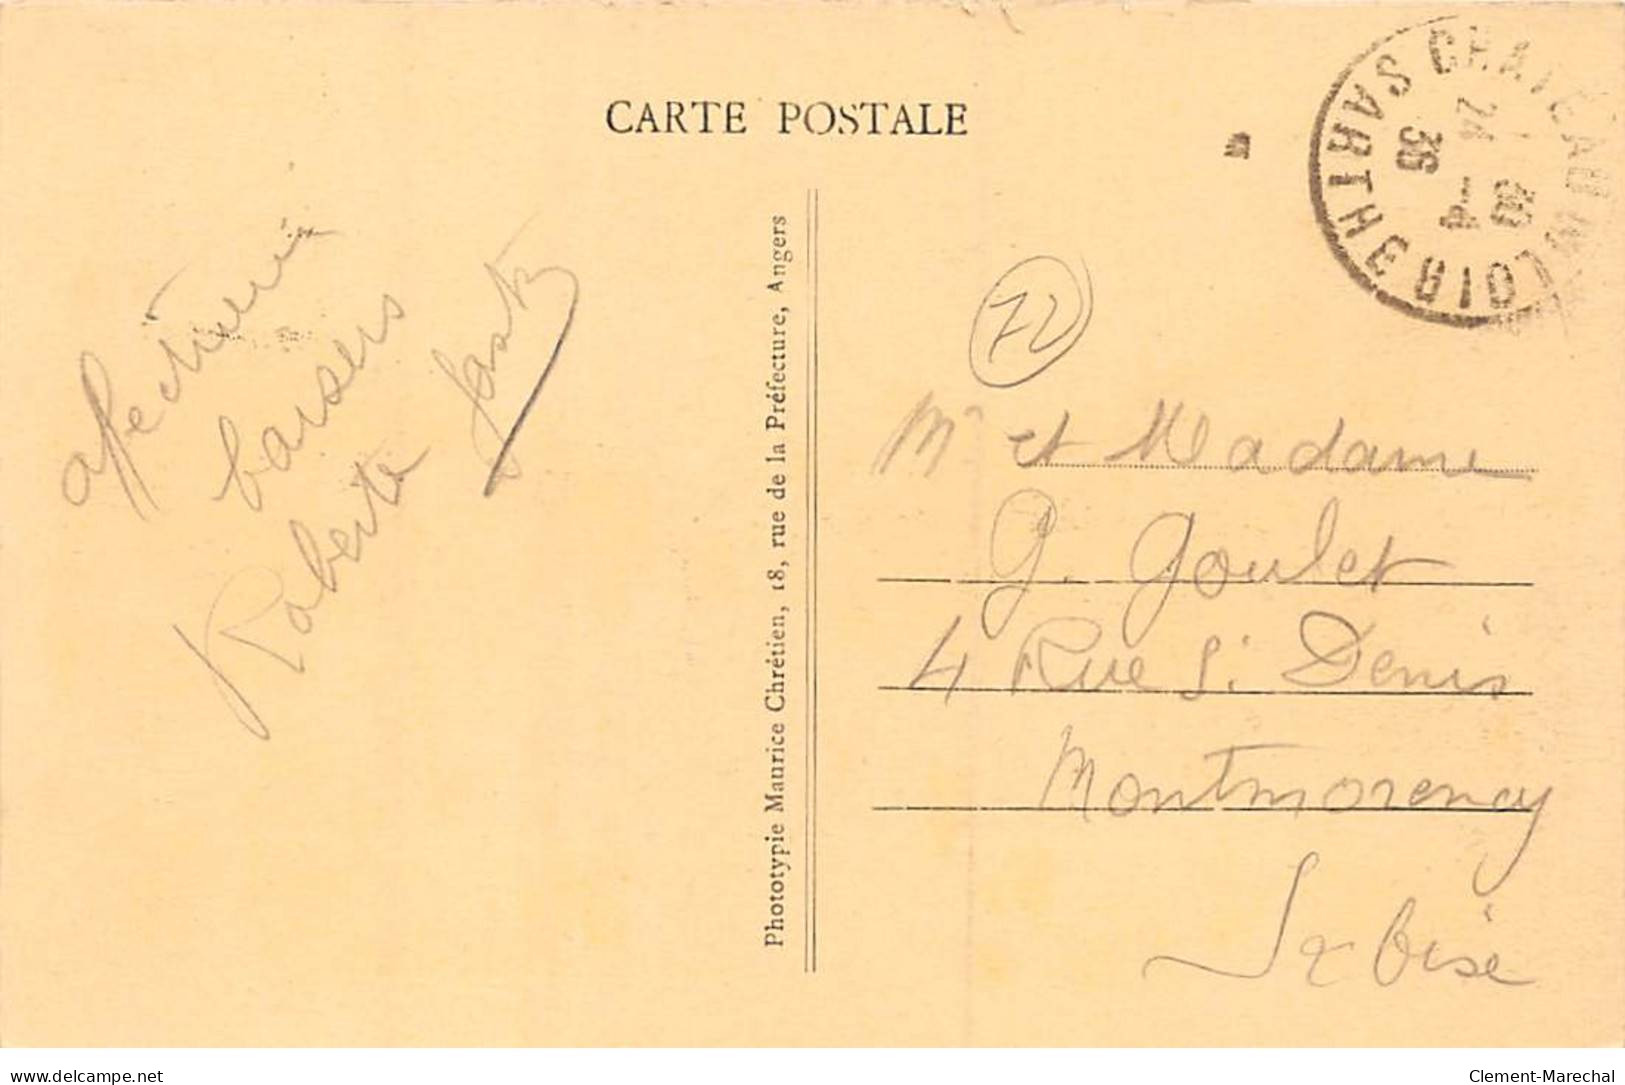 CARTE POSTALE
CHATEAU DU LOIR
SARTHE
24
36
baisers
Roberte
Phototypie Maurice Chrétien, 18, rue de la Préfecture, Angers
72
Mr et Madame
G. Goulet
4 Rue St Denis
Montmorency
S et Oise
delcampe.net
Clement-Marechal